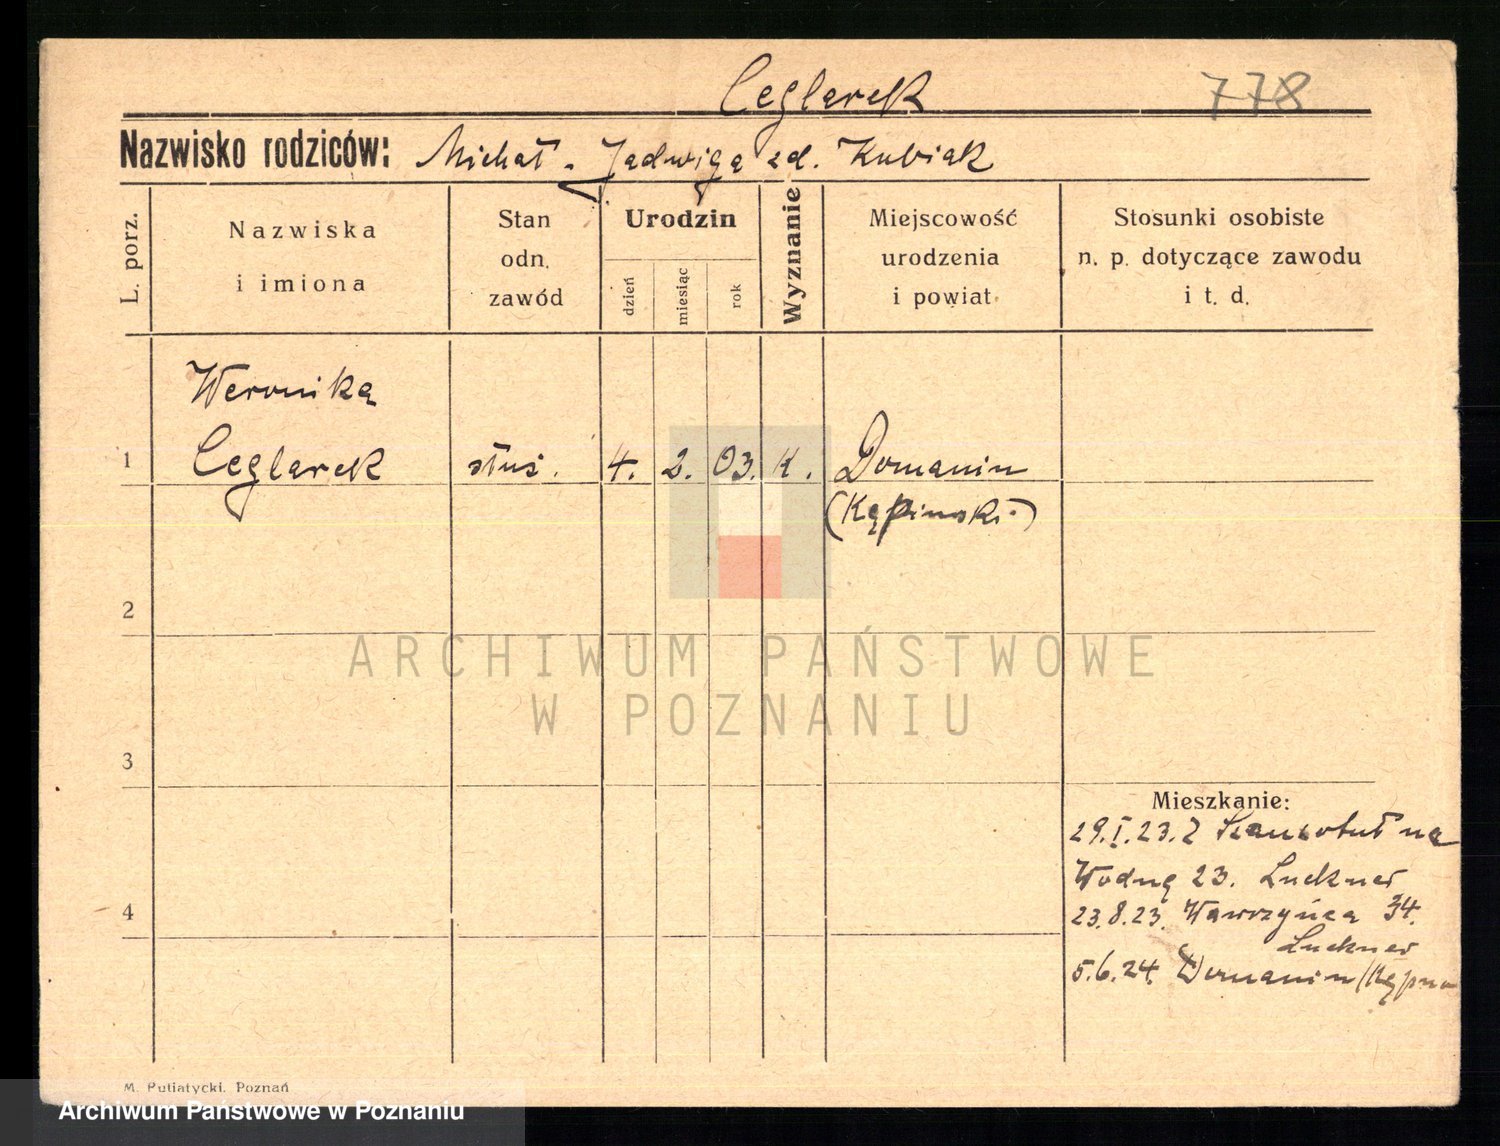 Ceglarek 778
Nazwisko rodziców: Michał - Jadwiga zd. Kubiak
L. porz.
Nazwiska
i imiona
Stan
odn.
zawód
Urodzin
dzień
miesiąc
rok
Wyznanie
Miejscowość
urodzenia
i powiat
Stosunki osobiste
n. p. dotyczące zawodu
i t. d.
Weronika
1 Ceglarek służ. 4. 2. 03. K. Domanin
(Kępiński)
2
3
4
ARCHIWUM PAŃSTWOWE
W POZNANIU
Mieszkanie:
29.I.23. Z na
Wodną 23. Luckner
23.8.23. Wawrzyńca 34.
Luckner
5.6.24. Domanin (Kępno
M. Putiatycki, Poznań
Archiwum Państwowe w Poznaniu